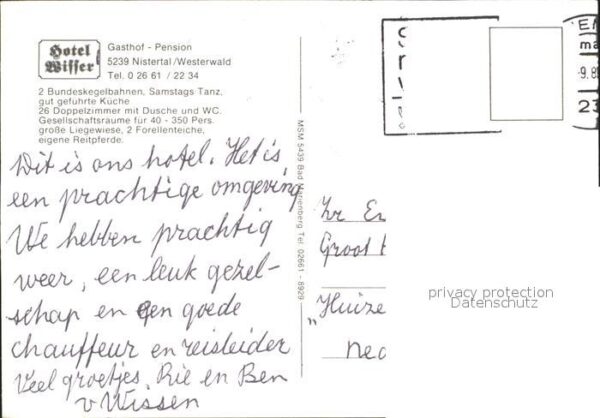 Hotel
Wisser
Gasthof - Pension
5239 Nistertal/Westerwald
Tel. 0 26 61 / 22 34
2 Bundeskegelbahnen, Samstags Tanz,
gut geführte Küche
26 Doppelzimmer mit Dusche und WC.
Gesellschaftsräume für 40 - 350 Pers.
große Liegewiese, 2 Forellenteiche,
eigene Reitpferde.
Dit is ons hotel. Het is
een prachtige omgeving
We hebben prachtig
weer, een leuk gezel-
schap en een goede
chauffeur en reisleider
Veel groetjes, Rie en Ben
v Wissen
MSM 5439 Bad Marienberg Tel. 02661 - 8929
Groot
"Huize
Ned
privacy protection
Datenschutz
ma
23